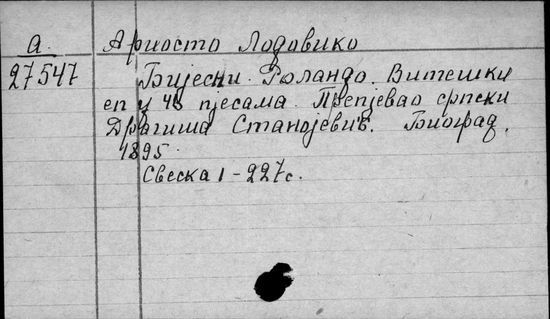 А. Ариосто Лодовико
27547 Бијесни Роландо. Витешки
еп у 46 пјесама. Препјевао српски
Драгиша Станојевић. Биоград,
1895.
Свеска 1 - 227 с.